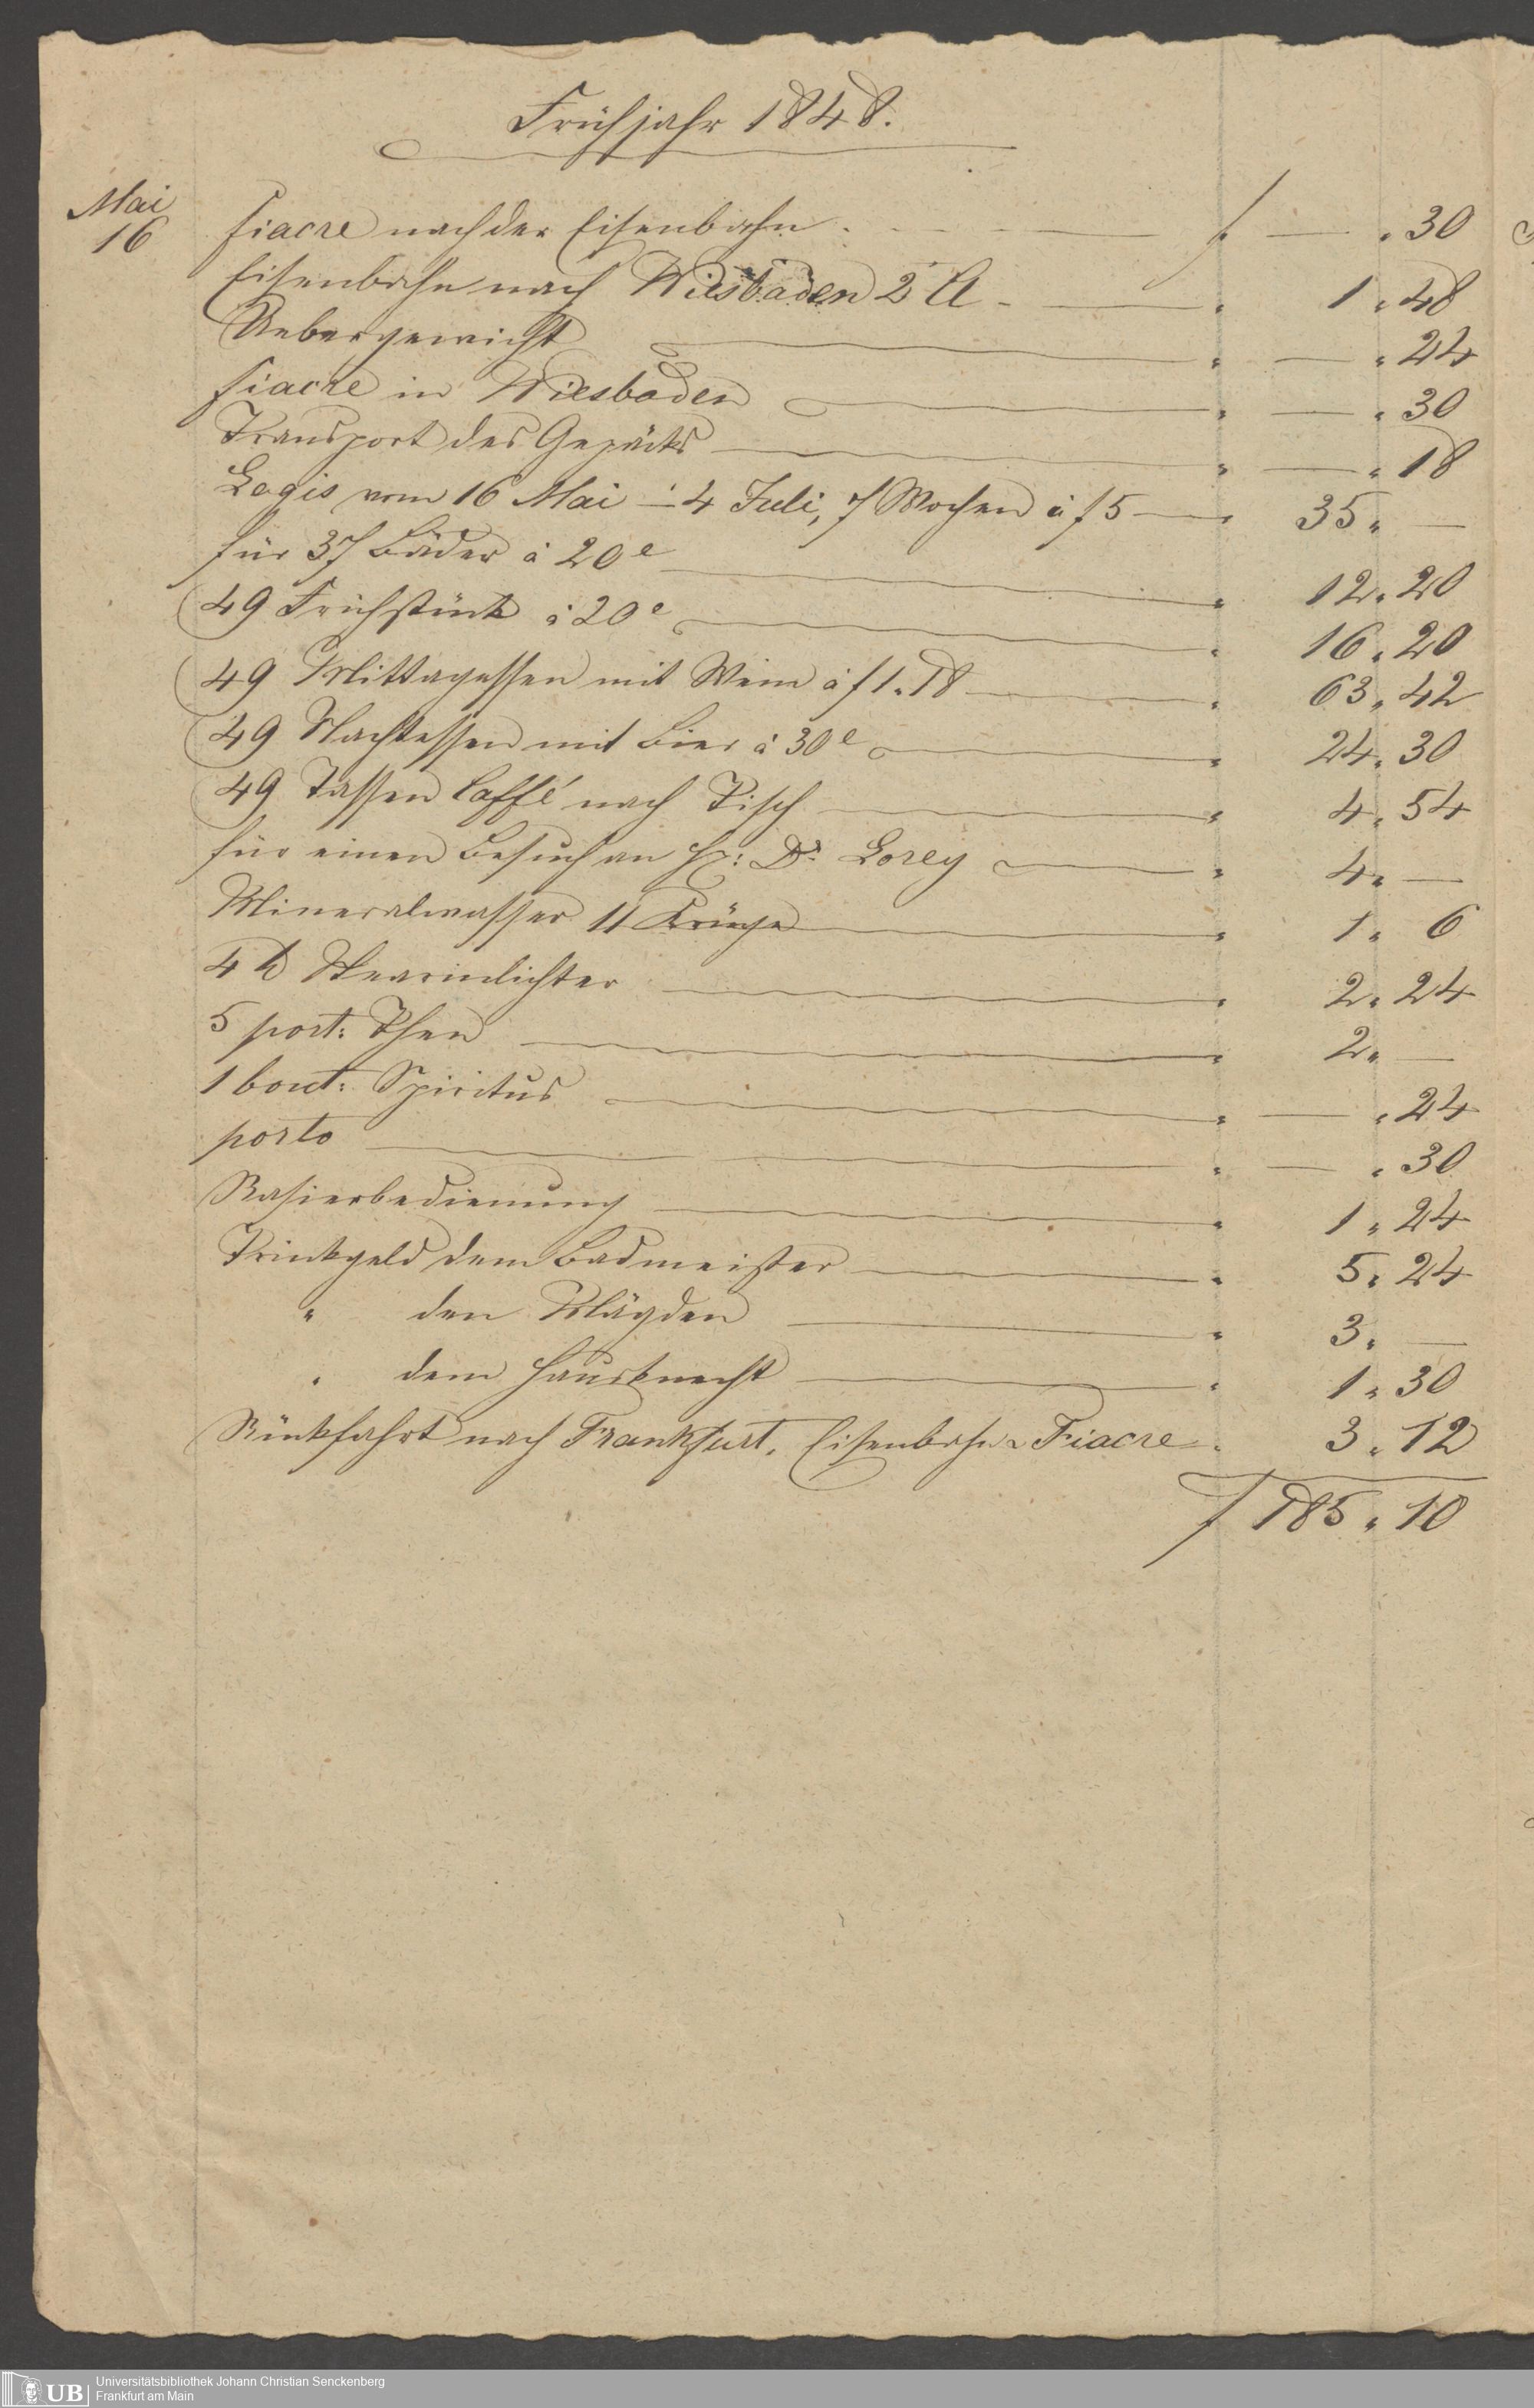 Frühjahr 1848.
Mai
16
Fiacre nach der Eisenbahn . - - - — f — " 30
Eisenbahn nach Wiesbaden 2 Cl - — " 1 " 48
Uebergewicht — " — " 24
Fiacre in Wiesbaden — " — " 30
Transport des Gepäcks — " — " 18
Logis vom 16 Mai ÷ 4 Juli, 7 Wochen à f 5 — " 35 " —
für 37 Bäder à 20 x — " 12 " 20
49 Frühstück à 20 x — " 16 " 20
49 Mittagessen mit Wein à f 1 " 18 — " 63 " 42
49 Nachtessen mit Bier à 30 x — " 24 " 30
49 Tassen Caffé nach Tisch — " 4 " 54
für einen Besuch an H: Dr Lorey — " 4 " —
Mineralwasser 11 Krüge — " 1 " 6
4 ℔ Stearinlichter — " 2 " 24
5 port: Thee — " 2 " —
1 bout: Spiritus — " — " 24
porto — " — " 30
Rasierbedienung — " 1 " 24
Trinkgeld dem Badmeister — " 5 " 24
" den Mägden — " 3 " —
" dem Hausknecht — " 1 " 30
Rückfahrt nach Frankfurt, Eisenbahn & Fiacre " 3 " 12
f 185 " 10
UB
Universitätsbibliothek Johann Christian Senckenberg
Frankfurt am Main